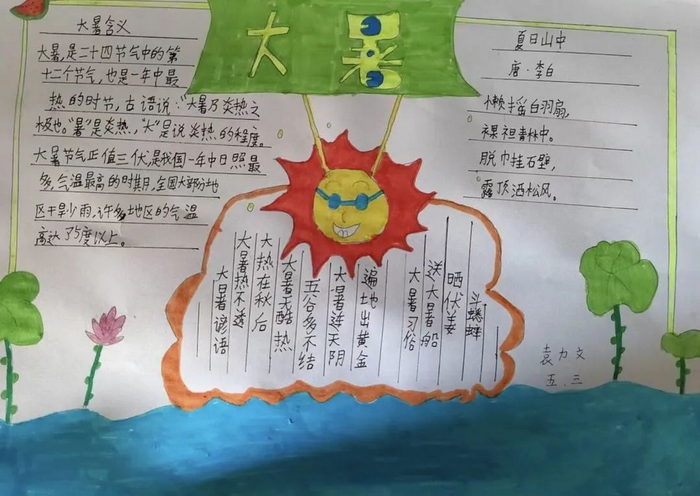 大暑
大暑含义
大暑，是二十四节气中的第
十二个节气，也是一年中最
热的时节，古语说："大暑乃炎热之
极也。"暑"是炎热，"大"是说炎热的程度。
大暑节气正值三伏，是我国一年中日照最
多，气温最高的时期，全国大部分地
区干旱少雨，许多地区的气温
高达了5度以上。
夏日山中
唐·李白
懒摇白羽扇，
裸袒青林中。
脱巾挂石壁，
露顶洒松风。
大暑谚语
大暑热不透
大热在秋后
大暑无酷热
五谷多不结
大暑连天阴
遍地出黄金
大暑习俗
送大暑船
晒伏姜
斗蟋蟀
袁力文
五.三